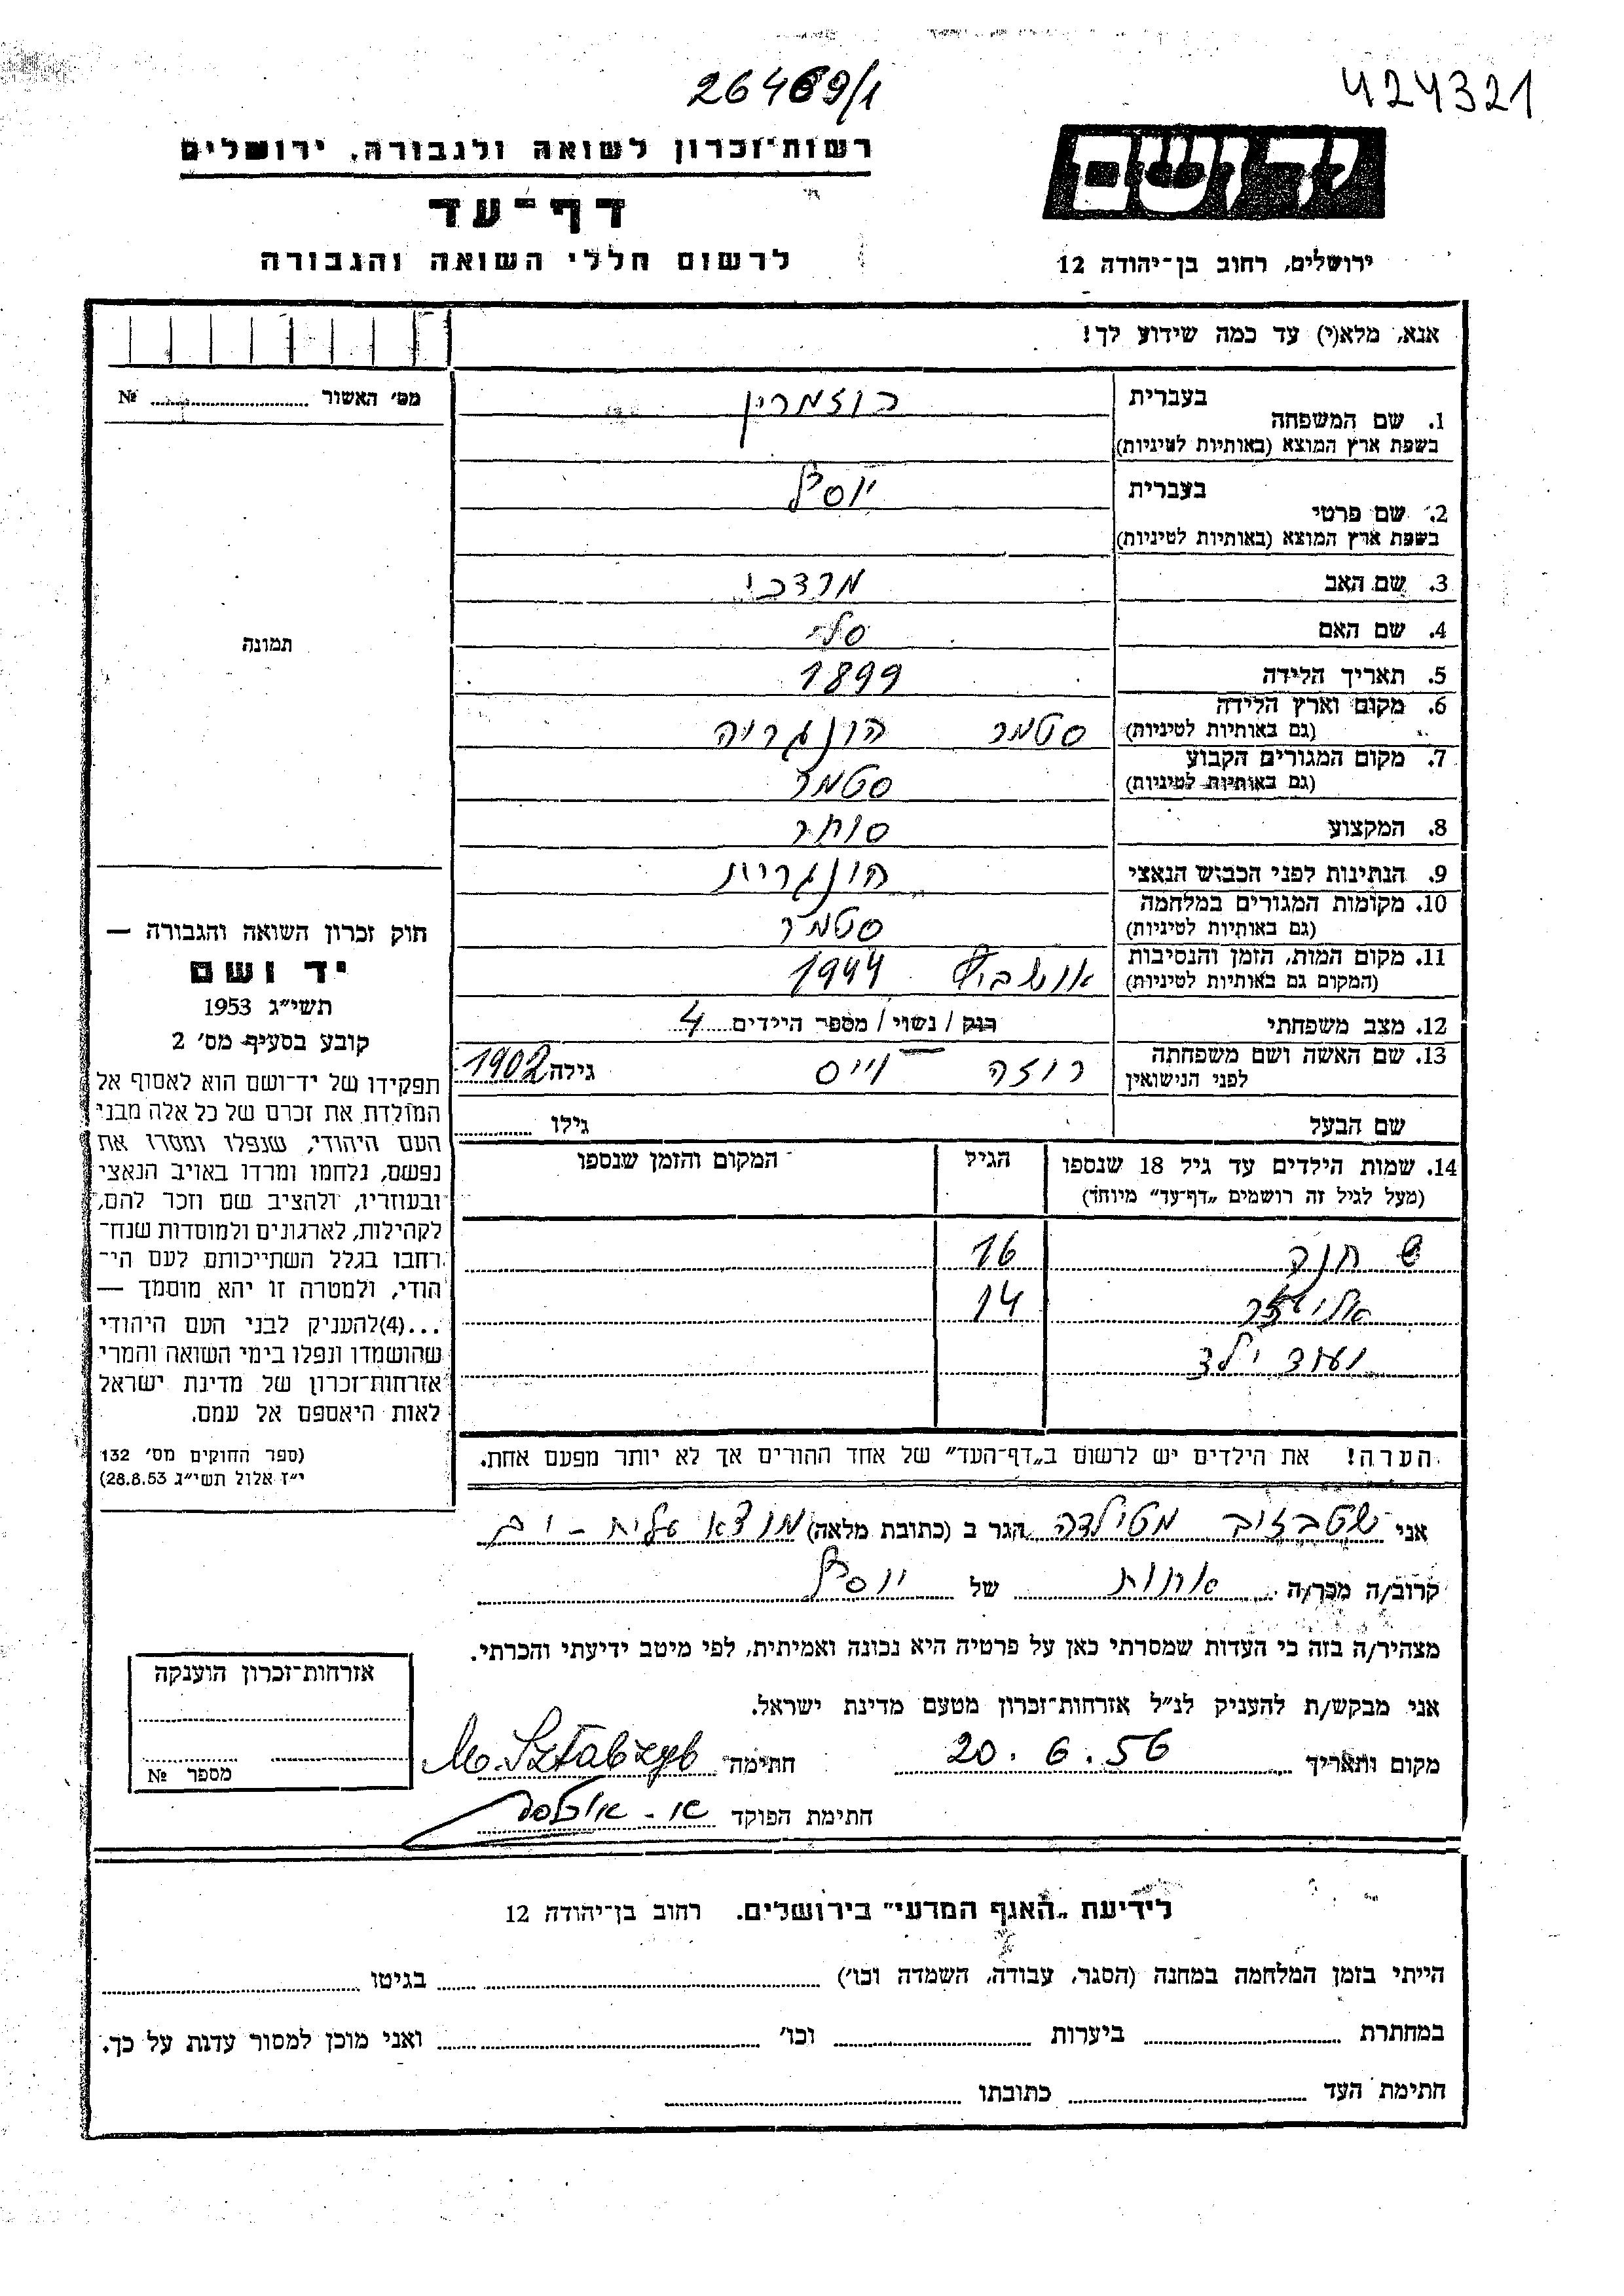 26469/1
424321
רשות־זכרון לשואה ולגבורה, ירושלים
יד ושם
דף־עד
לרשום חללי השואה והגבורה
ירושלים, רחוב בן־יהודה 12
אנא, מלא(י) עד כמה שידוע לך!
מס׳ האשור № 
בעברית רוזמרין
1. שם המשפחה
בשפת ארץ המוצא (באותיות לטיניות)
בעברית יוסף
2. שם פרטי
בשפת ארץ המוצא (באותיות לטיניות)
3. שם האב מרדכי
4. שם האם
5. תאריך הלידה 1899
6. מקום וארץ הלידה סטמר הונגריה
(גם באותיות לטיניות)
7. מקום המגורים הקבוע סטמר
(גם באותיות לטיניות)
8. המקצוע סוחר
9. הנתינות לפני הכבוש הנאצי הונגרית
10. מקומות המגורים במלחמה סטמר
(גם באותיות לטיניות)
11. מקום המות, הזמן והנסיבות אושביץ 1944
(המקום גם באותיות לטיניות)
12. מצב משפחתי רווק / נשוי / מספר הילדים 4
13. שם האשה ושם משפחתה רוזה וייס גילה 1902
לפני הנישואין
שם הבעל גילו
14. שמות הילדים עד גיל 18 שנספו הגיל המקום והזמן שנספו
(מעל לגיל זה רושמים „דף־עד״ מיוחד)
חנה 16
אליעזר 14
ועוד ילד
הערה! את הילדים יש לרשום ב„דף־העד״ של אחד ההורים אך לא יותר מפעם אחת.
תמונה
חוק זכרון השואה והגבורה —
יד ושם
תשי״ג 1953
קובע בסעיף מס׳ 2
תפקידו של יד־ושם הוא לאסוף אל
המולדת את זכרם של כל אלה מבני
העם היהודי, שנפלו ומסרו את
נפשם, נלחמו ומרדו באויב הנאצי
ובעוזריו, ולהציב שם וזכר להם,
לקהילות, לארגונים ולמוסדות שנח־
רחבו בגלל השתייכותם לעם הי־
הודי, ולמטרה זו יהא מוסמך —
...(4)להעניק לבני העם היהודי
שהושמדו ונפלו בימי השואה והמרי
אזרחות־זכרון של מדינת ישראל
לאות היאספם אל עמם.
(ספר החוקים מס׳ 132
י״ז אלול תשי״ג 28.8.53)
אני שטבזיב מטילדה הגר ב (כתובת מלאה) מוצא עלית - ים
קרוב/ה מכר/ה אחות של יוסף
מצהיר/ה בזה כי העדות שמסרתי כאן על פרטיה היא נכונה ואמיתית, לפי מיטב ידיעתי והכרתי.
אני מבקש/ת להעניק לנ״ל אזרחות־זכרון מטעם מדינת ישראל.
מקום ותאריך 20.6.56 חתימה M. Sztabzyb
חתימת הפוקד
אזרחות־זכרון הוענקה
מספר №
לידיעת „האגף המדעי״ בירושלים. רחוב בן־יהודה 12
הייתי בזמן המלחמה במחנה (הסגר, עבודה, השמדה וכו׳) בגיטו
במחתרת ביערות וכו׳ ואני מוכן למסור עדות על כך.
חתימת העד כתובתו